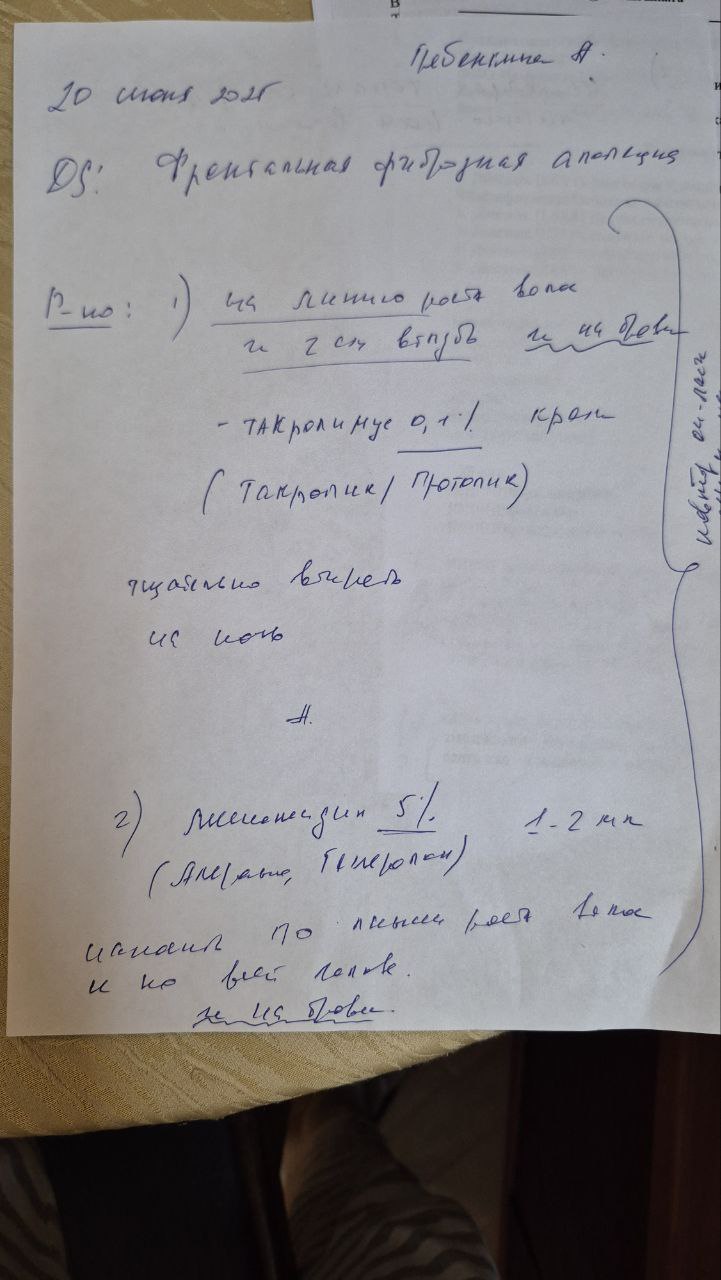 20 июня 2025
DS: Фронтальная фиброзная алопеция
Р-но: 1) на линию роста волос
и 2 см вглубь и на брови
- Такролимус 0,1% крем
(Такропик/Протопик)
тщательно втирать
на ночь
2) Миноксидил 5% 1-2 мл
(Алерана, Генеролон)
наносить по линии роста волос
и по всей голове.
и на брови.